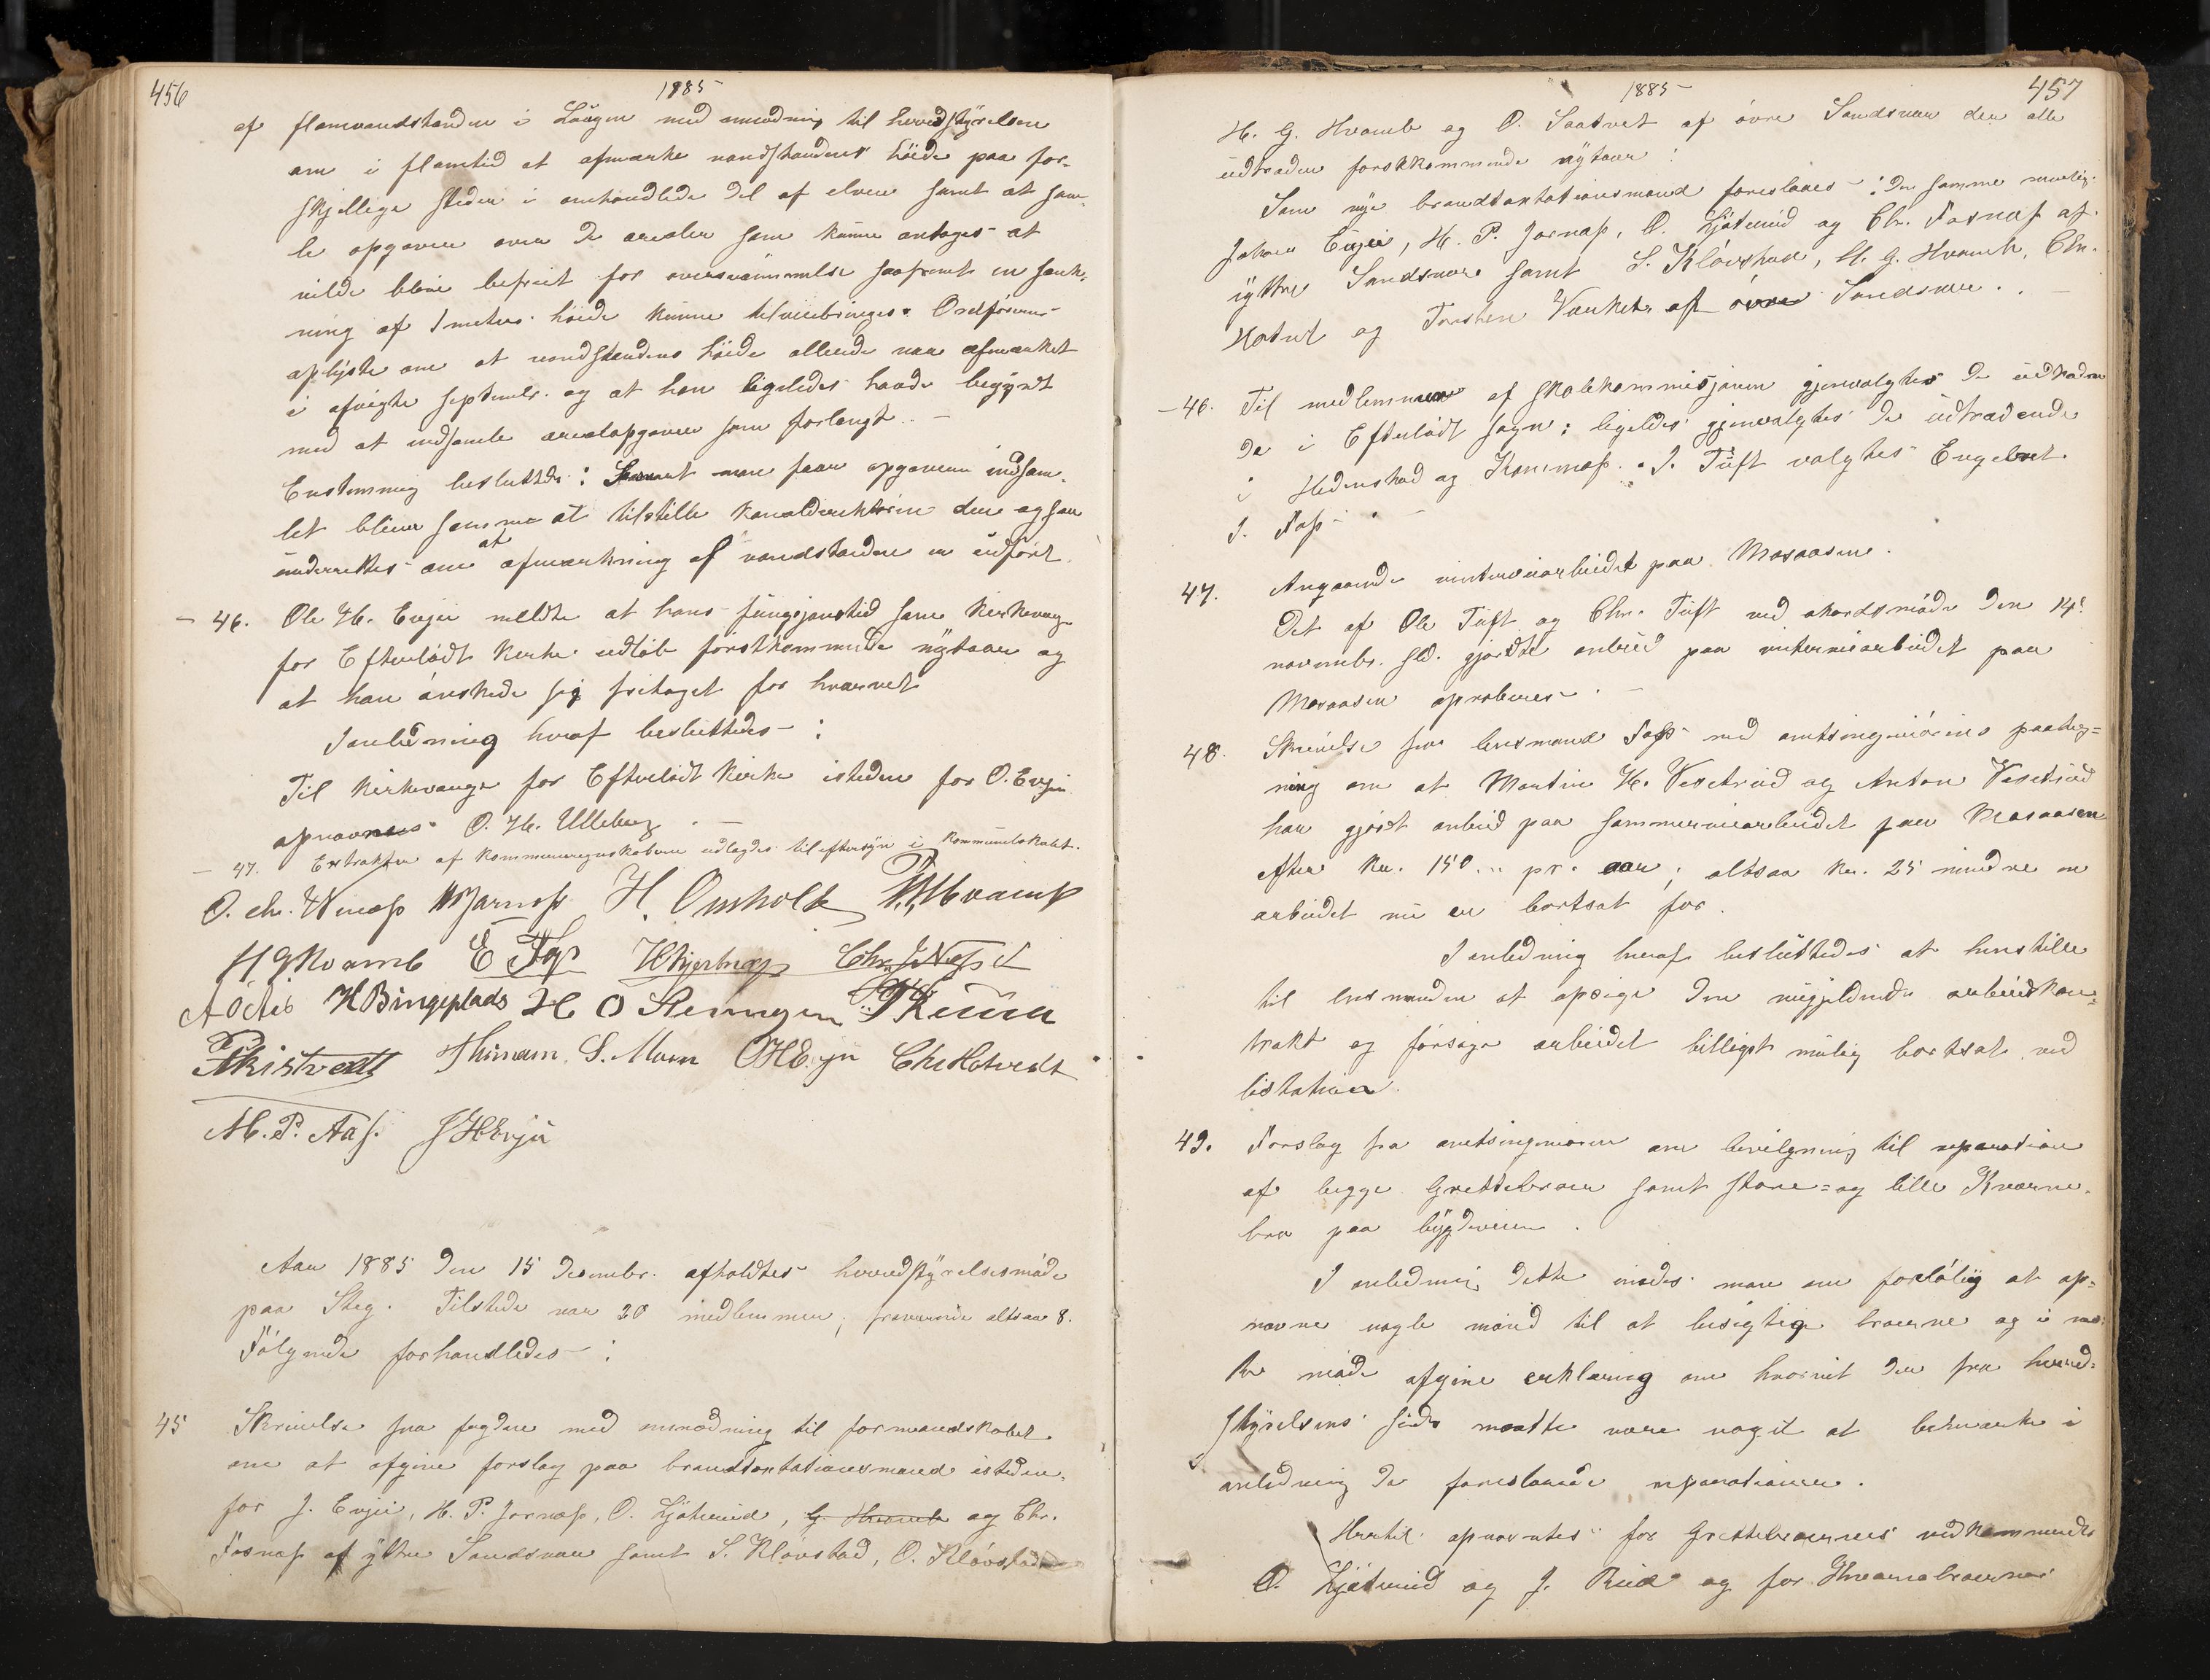 456
1885
af flomvandstanden i Laugen med anmodning til herredstyrelsen
om i flomtid at afmærke vandstandens høide paa for-
skjellige steder i omhandlede del af elven samt at sam-
le opgaver over de arealer som kunne antages at
vilde blive befriet for oversvømmelse saafremt en sænk-
ning af 1 meters høide kunne tilveiebringes. Ordføreren
oplyste om at vandstandens høide allerede var afmærket
i afvigte septembr. og at han ligeledes havde begyndt
med at indsamle arealopgaver som forlangt. –
Enstemmig besluttedes: Saasnart man faar opgaverne indsam-
let bliver samme at tilstille kanaldirektøren der ogsaa
underrettes om at afmærkning af vandstanden er udført.
– 46. Ole H. Evju meldte at hans fungsjonstid som kirkeverge
for Eftelødt kirke udløb førstkommende nytaar og
at han ønskede sig fritaget for hvervet
I anledning heraf besluttedes :
Til kirkeverge for Eftelødt kirke istedenfor O. Evju
opnævnes O. H. Ulleberg. –
– 47. Extrakten af kommuneregnskaberne udlagdes til eftersyn i kommunelokalet.
O. Chr. H. Jarnæss H. Omholt Hvamb
H G Hvamb E Foss Chr.
H Bingeplads H O P Ruud
Skistvedt S. Moen O H Evju Chr Hotvedt
M. P. Aas. J H Evju
Aar 1885 den 15 Decembr. afholdtes herredstyrelsesmøde
paa Steg. Tilstede var 20 medlemmer; fraværende altsaa 8.
Følgende forhandledes :
45 Skrivelse fra fogden med anmodning til formandskabet
om at afgive forslag paa brandtaxtationsmænd isteden-
for J. Evju, H. P. Jarnæss, O. Ljøterud, G. Hvamb og Chr.
Fosnæss af yttre Sandsvær samt S. Kløvstad, O. Kløvstad
1885
457
H. G. Hvamb og O. Saatvet af øvre Sandsvær der alle
udtræder førstkommende nytaar :
Som nye brandtaxtationsmænd foreslaaes : De samme nemlig
Johan Evju, H. P. Jarnæss, O. Ljøterud og Chr. Fosnæss af
yttre Sandsvær samt S. Kløvstad, H. G. Hvamb, Chr.
Hotvet og Torsten af øvre Sandsvær. –
– 46. Til medlemmer af skolekommissjonen gjenvalgtes de udtræden-
de i Eftelødt sogn; ligeledes gjenvalgtes de udtrædende
i Hedenstad og Komnæss. I. J. Tufts valgtes Engebret
J. Foss. –
47. Angaaende vinterveiarbeidet paa Moaaasen.
Det af Ole Tuft og Chr. Tuft ved akordsmøde den 14de
novembr. sld. gjordte anbud paa vinterveiarbeidet paa
Moaaasen aproberes. –
48. Skrivelse fra lensmand Foss med amtsingeniørens paateg=
ning om at Martin H. Vesetrud og Anton Vesetrud
har gjort anbud paa sommerveiarbeidet paa Moaaasen
efter kr. 150 pr. aar; altsaa kr. 25 mindre en
arbeidet nu er bortsat for.
I anledning heraf besluttedes at henstille
til lensmanden at opsige den nugjeldende arbeidskon=
trakt og forsøge arbeidet billigst mulig bortsat ved
lisitation.
49. Forslag fra amtsingeniøren om bevilgning til reparation
af begge Grettebroer samt store= og lille Kværne-
bro paa bygdeveien.
I anledning dette enedes man om foreløbig at op=
nævne nogle mænd til at besigtige broerne og i næ=
ste møde afgive erklæring om hvorvit der fra herred=
styrelsens side maatte være noget at bemærke i
anledning de foreslaaede reparationer.
Hertil opnævntes for Grettebroernes vedkommende
O. Ljøterud og J. Ruud og for Kværnebroernes